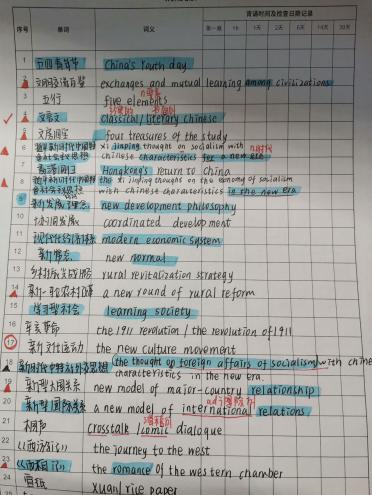 背诵时间及检查日期记录
序号 单词 词义 第一遍 1h 1天 2天 4天 7天 15天 30天
1 五四青年节 China's Youth day
2 文明交流互鉴 exchanges and mutual learning among civilizations
3 五行 five elements
4 文言文 classical/literary chinese
5 文房四宝 four treasures of the study
6 xi jinping thought on socialism with
chinese characteristics for a new era
7 香港回归 Hongkong's return to China
8 the xi jinping thoughts on the economy of socialism
with chinese characteristics in the new era
9 新发展理念 new development philosophy
10 协调发展 coordinated development
11 现代化经济体系 modern economic system
12 新常态 new normal
13 乡村振兴战略 rural revitalization strategy
14 新一轮农村改革 a new round of rural reform
15 学习型社会 learning society
16 辛亥革命 the 1911 revolution / the revolution of 1911
17 新文化运动 the new culture movement
18 the thought on foreign affairs of socialism with chine
characteristics in the new era.
19 新型大国关系 new model of major-country relationship
20 新型国际关系 a new model of international relations
21 相声 crosstalk /comic dialogue
22 《西游记》 the journey to the west
23 《西厢记》 the romance of the western chamber
24 宣纸 xuan/rice paper